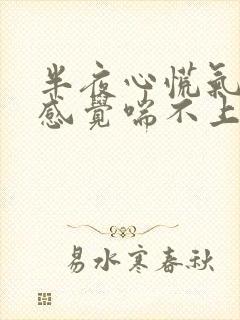 半夜心慌氣
感覺喘不上
易水寒春秋